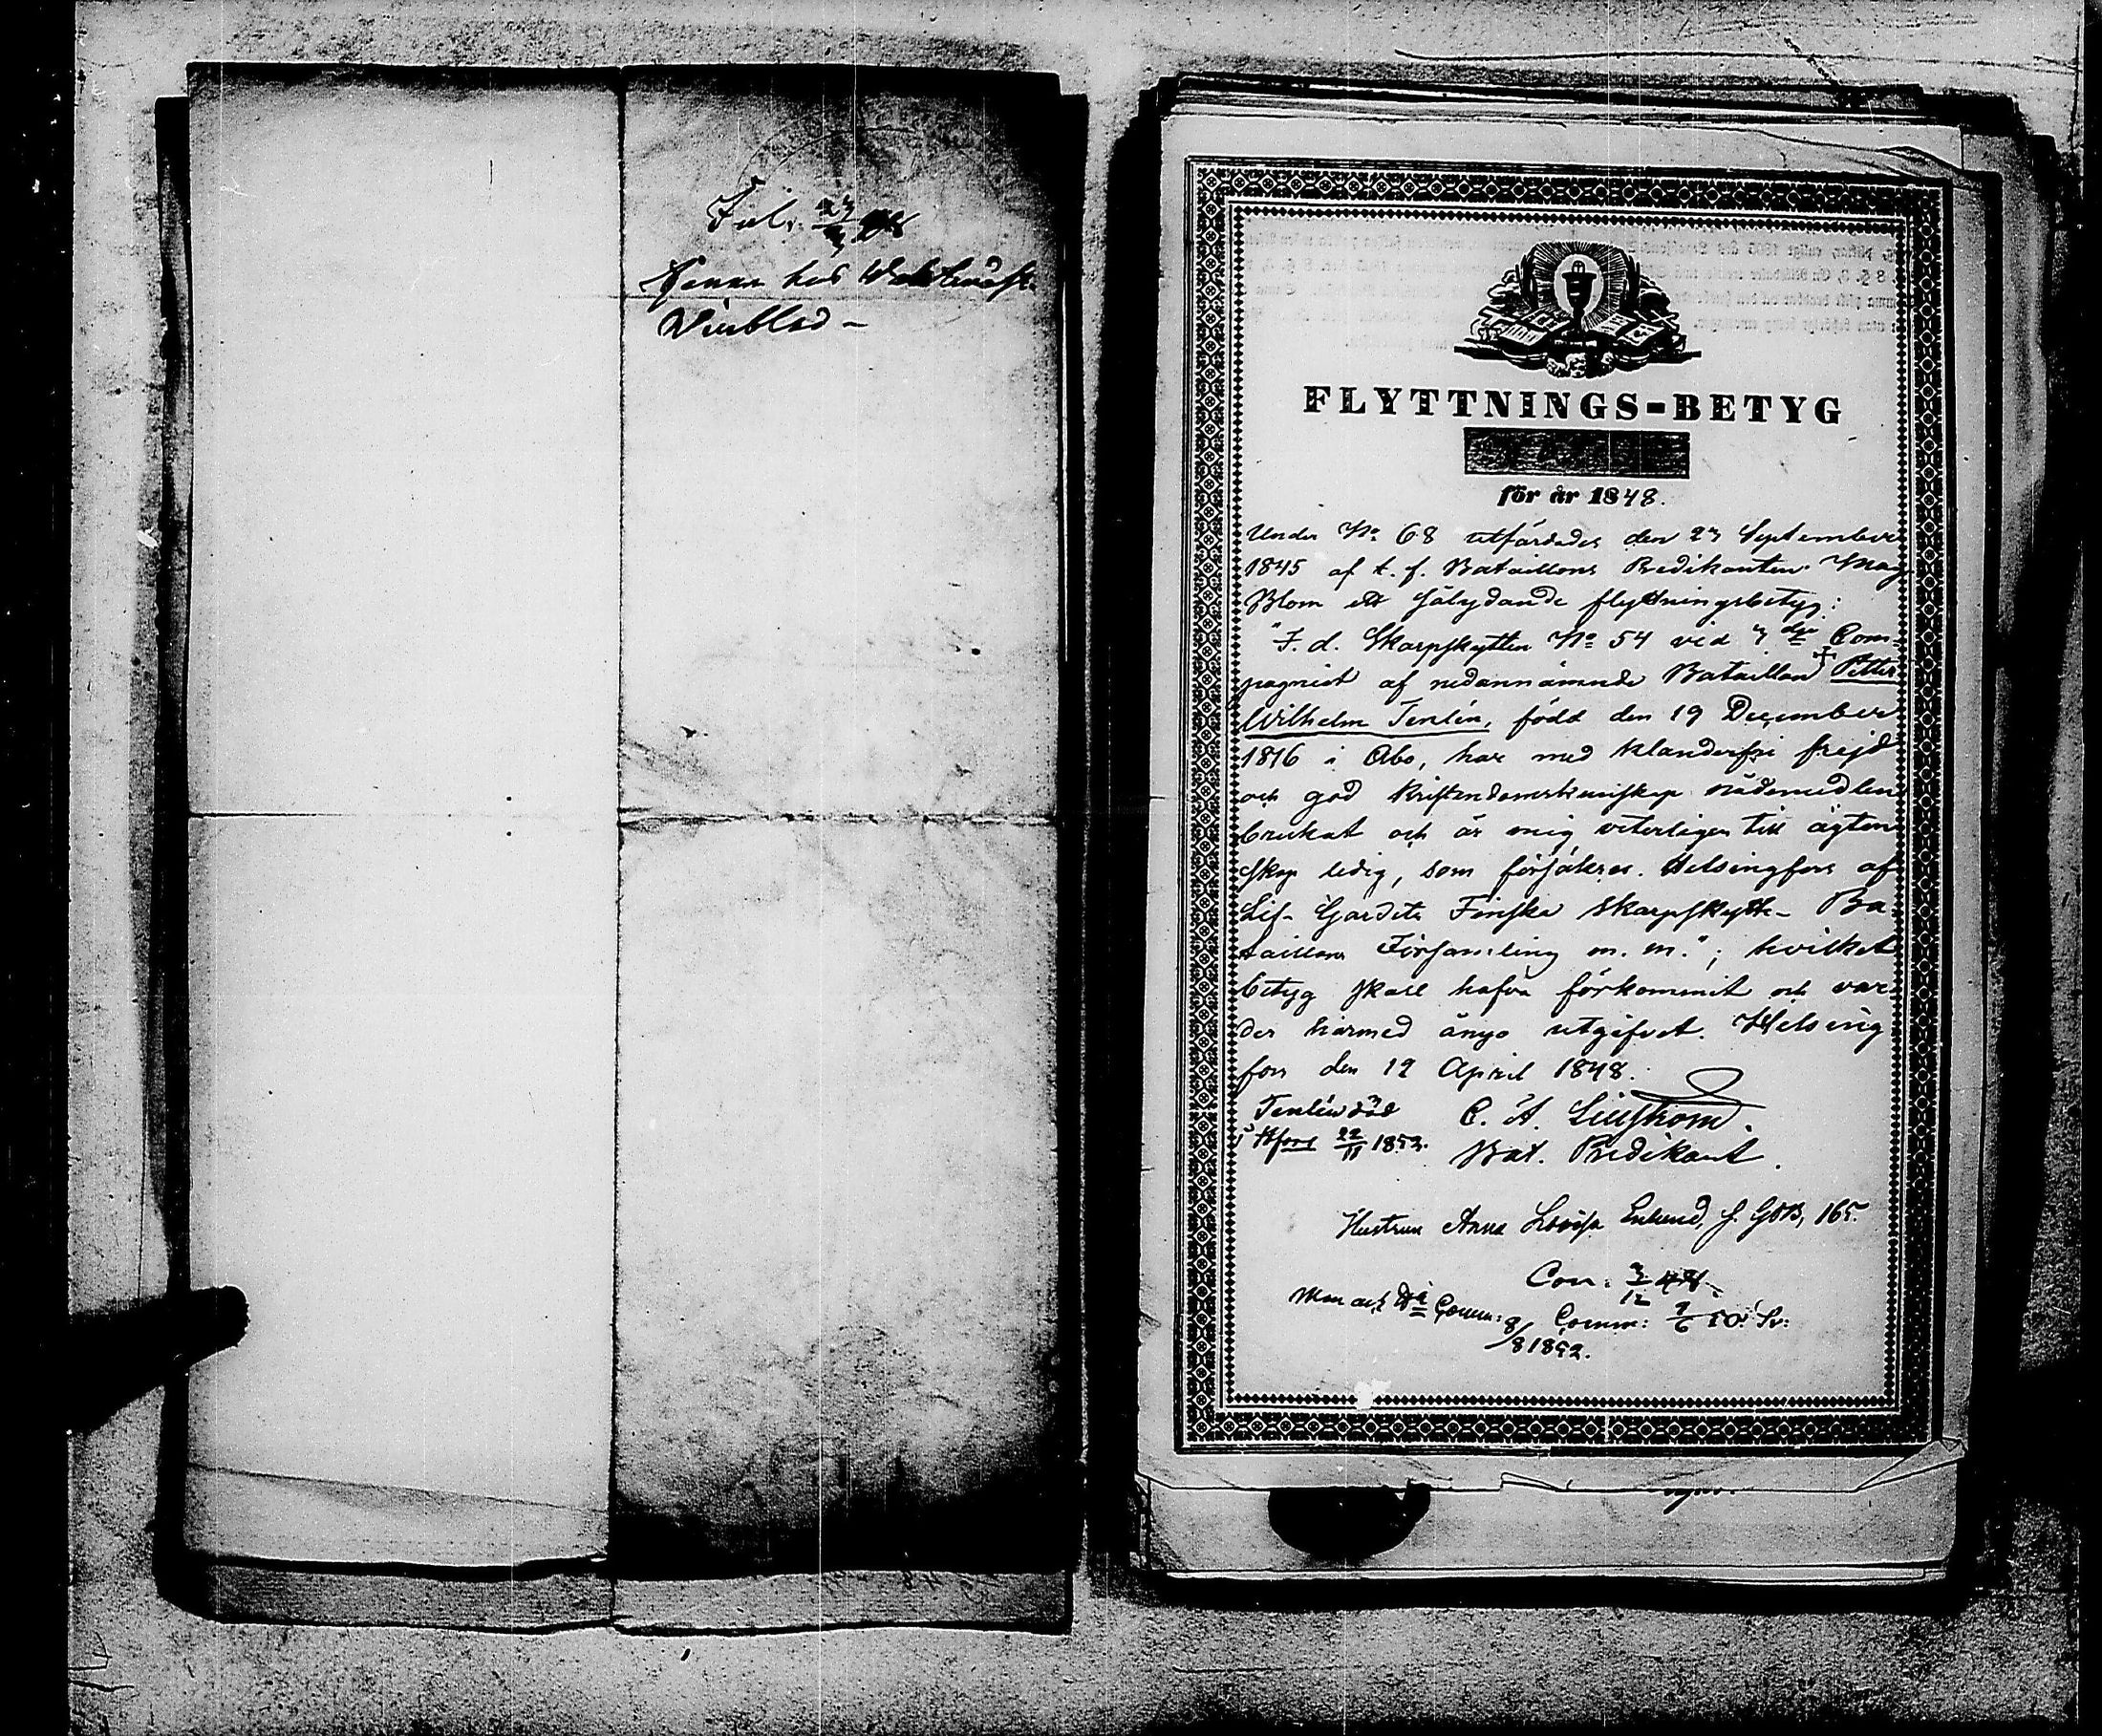 hos
Winblad –
FLYTTNINGS-BETYG
för år 1848.
Under No 68 utfärdades den 23 September
1845 af t. f. Bataillons Predikanten Mag
Blom ett sålydande flyttningsbetyg:
"F. d. Skarpskytten No 54 vid 3dje Com-
pagniet af nedannämnde Bataillon Petter
Wilhelm Tenlén, född den 19 December
1816 i Åbo, har med klanderfri frejd
och god kristendomskunskap nådemedlen
brukat och är mig veterligen till ägten
skap ledig, som försäkras. Helsingfors af
Lif-Gardets Finska Skarpskytte-Ba-
taillons Församling m. m."; hvilket
betyg skall hafva förkommit och var
der härmed ånyo utgifvet. Helsing
fors den 12 April 1848.
Tenlén död C. A. Lillström.
i Hfors 22/11 1853. Bat. Predikant.
Hustrun Anna Lovisa Enlund, f. 165.
Con. 3/12
Man och Comm: 8/8 1852. Comm: 9/6 50.